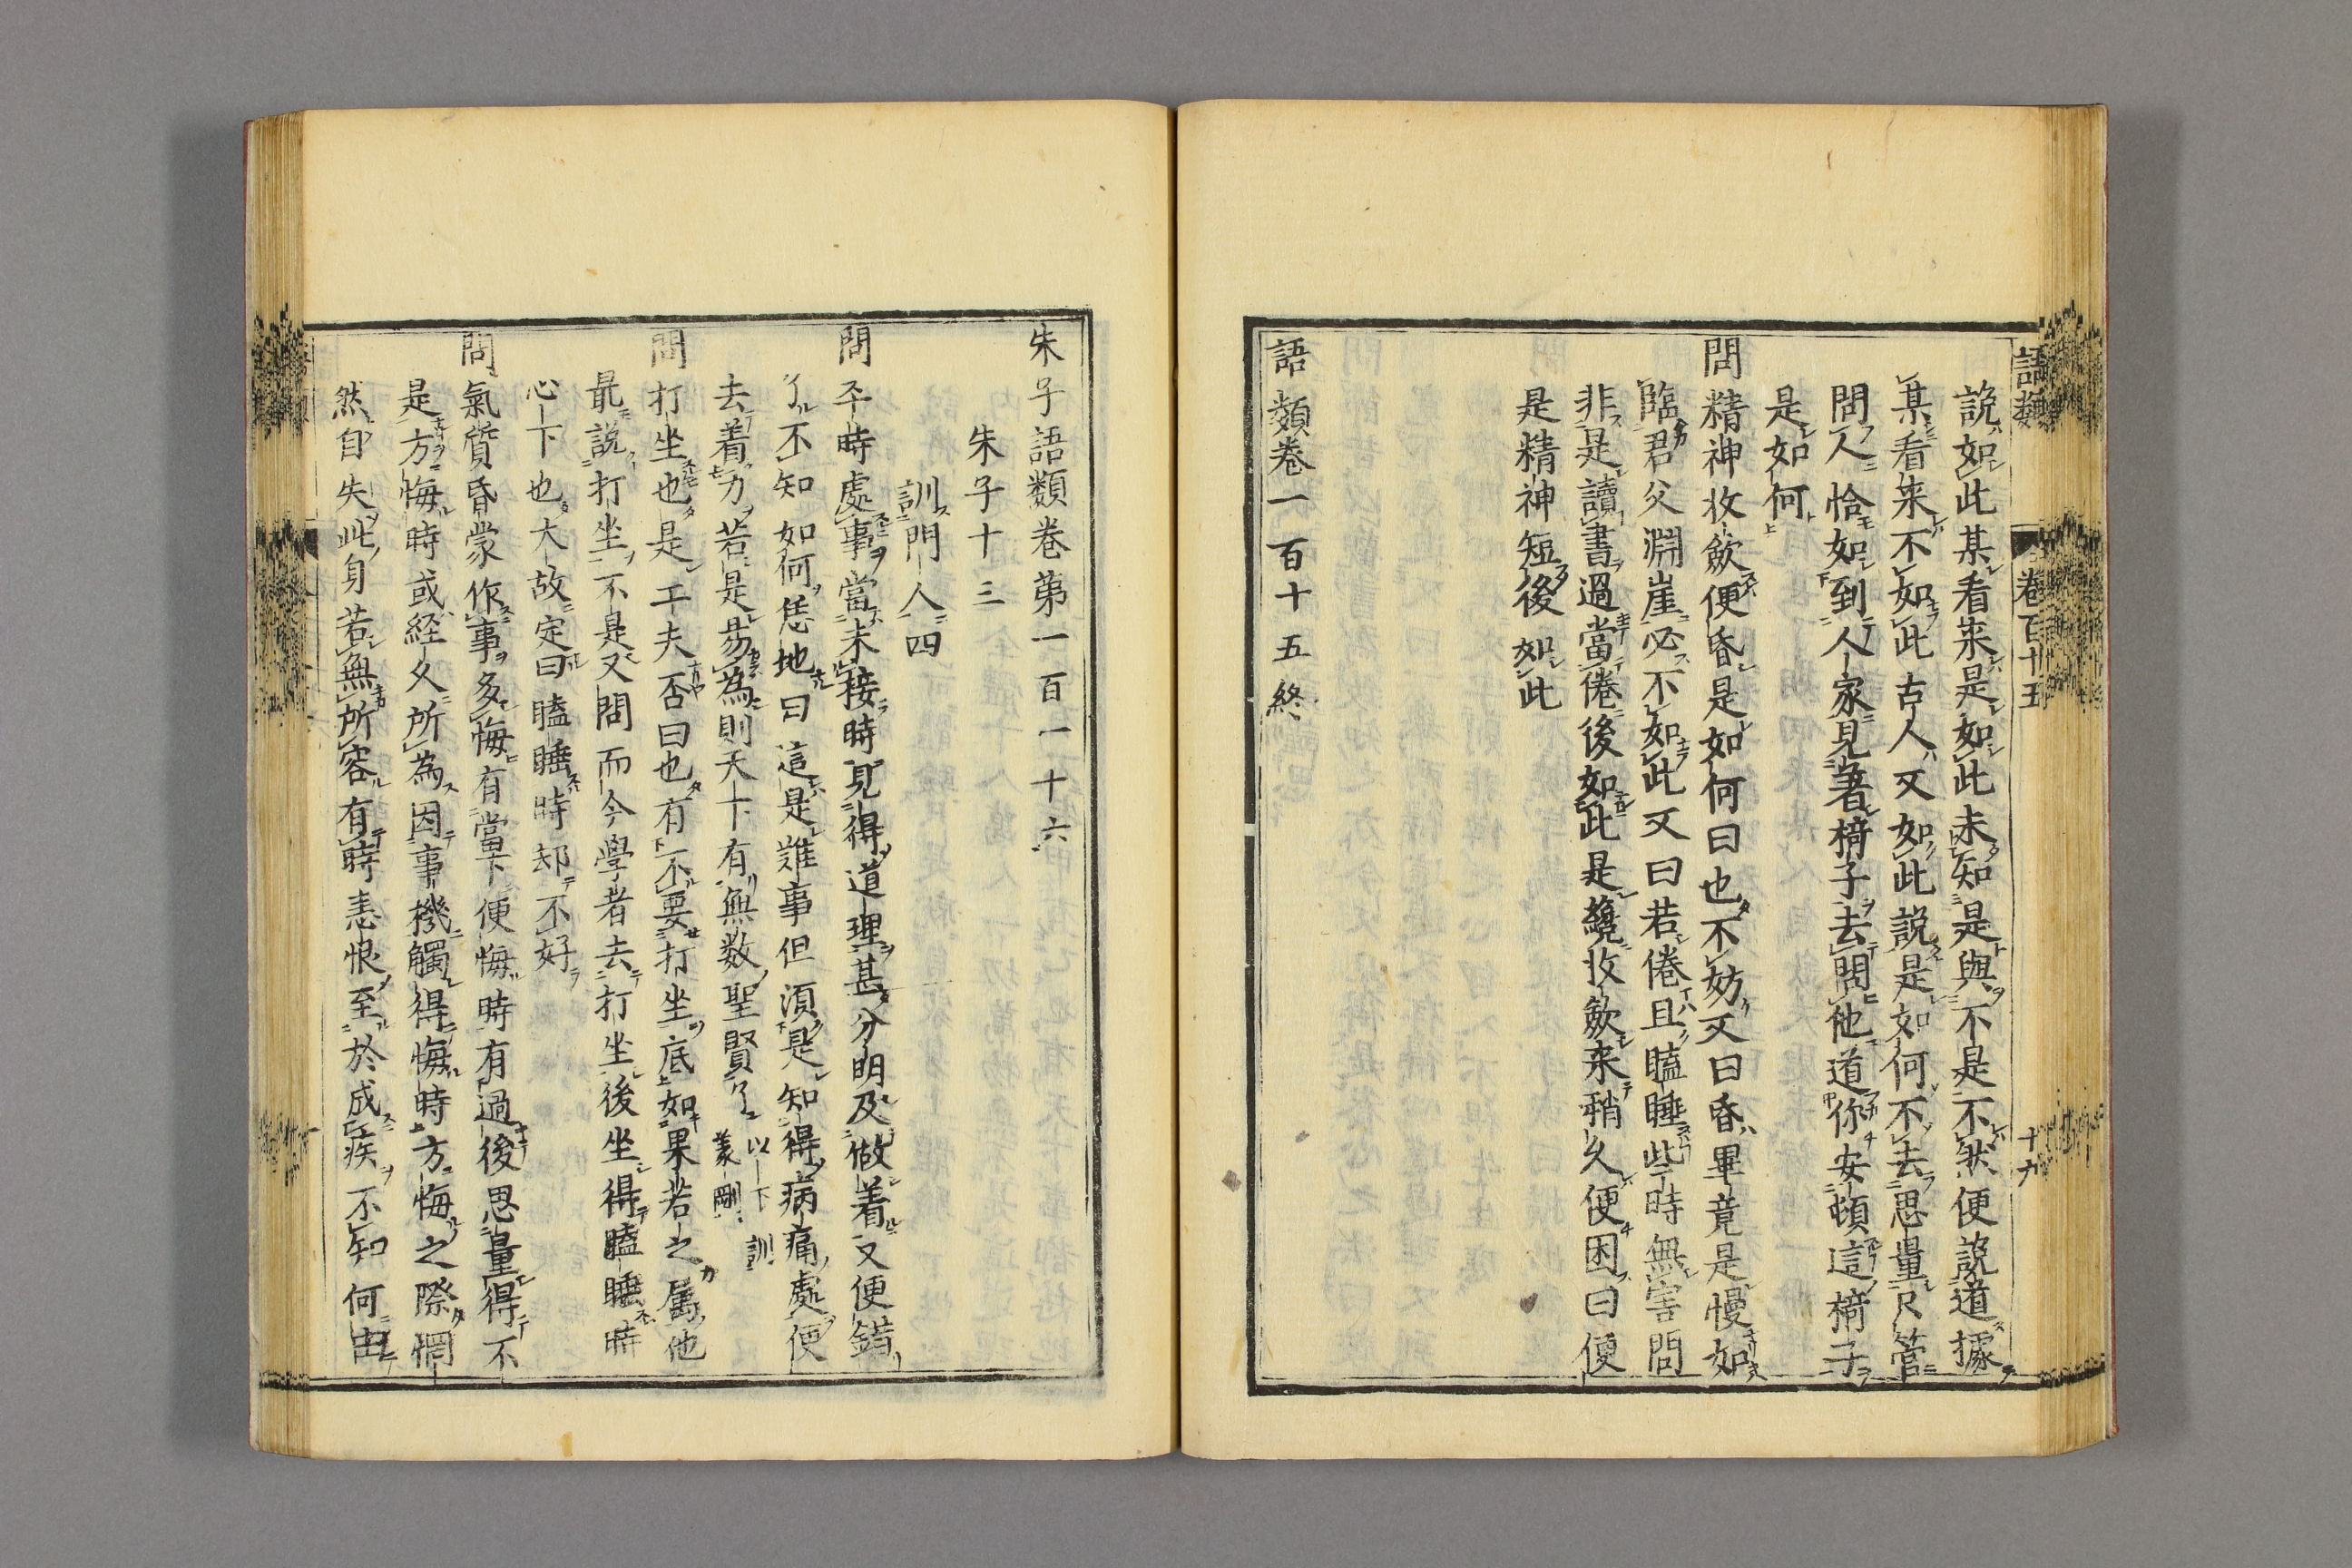 語類 卷百十五 十九
説如此某看来是如此未知是與不是不然便説道據
某看来不如此古人又如此説是如何不去思量只管
問人恰如到人家見著椅子去問他道你安頓這椅子
是如何
問精神收歛便昏是如何曰也不妨又曰昏畢竟是慢如
臨君父淵崖必不如此又曰若倦且瞌睡些時無害問
非是讀書過當倦後如此是纔收歛来稍久便困曰便
是精神短後如此
語類卷一百十五終
朱子語類卷苐一百一十六
朱子十三
訓門人四
問平時處事當未接時見得道理甚分明及做着又便錯
了不知如何恁地曰這是難事但須是知得病痛處便
去着力若是易為則天下有無数聖賢了以下訓㽦剛
問打坐也是工夫否曰也有不要打坐底如果若之属他
最説打坐不是又問而今學者去打坐後坐得瞌睡時
心下也大故定曰瞌睡時却不好
問氣質昏蒙作事多悔有當下便悔時有過後思量得不
是方悔時或経久所為因事機觸得悔時方悔之際惘
然自失此身若無所容有時恚恨至於成疾不知何由